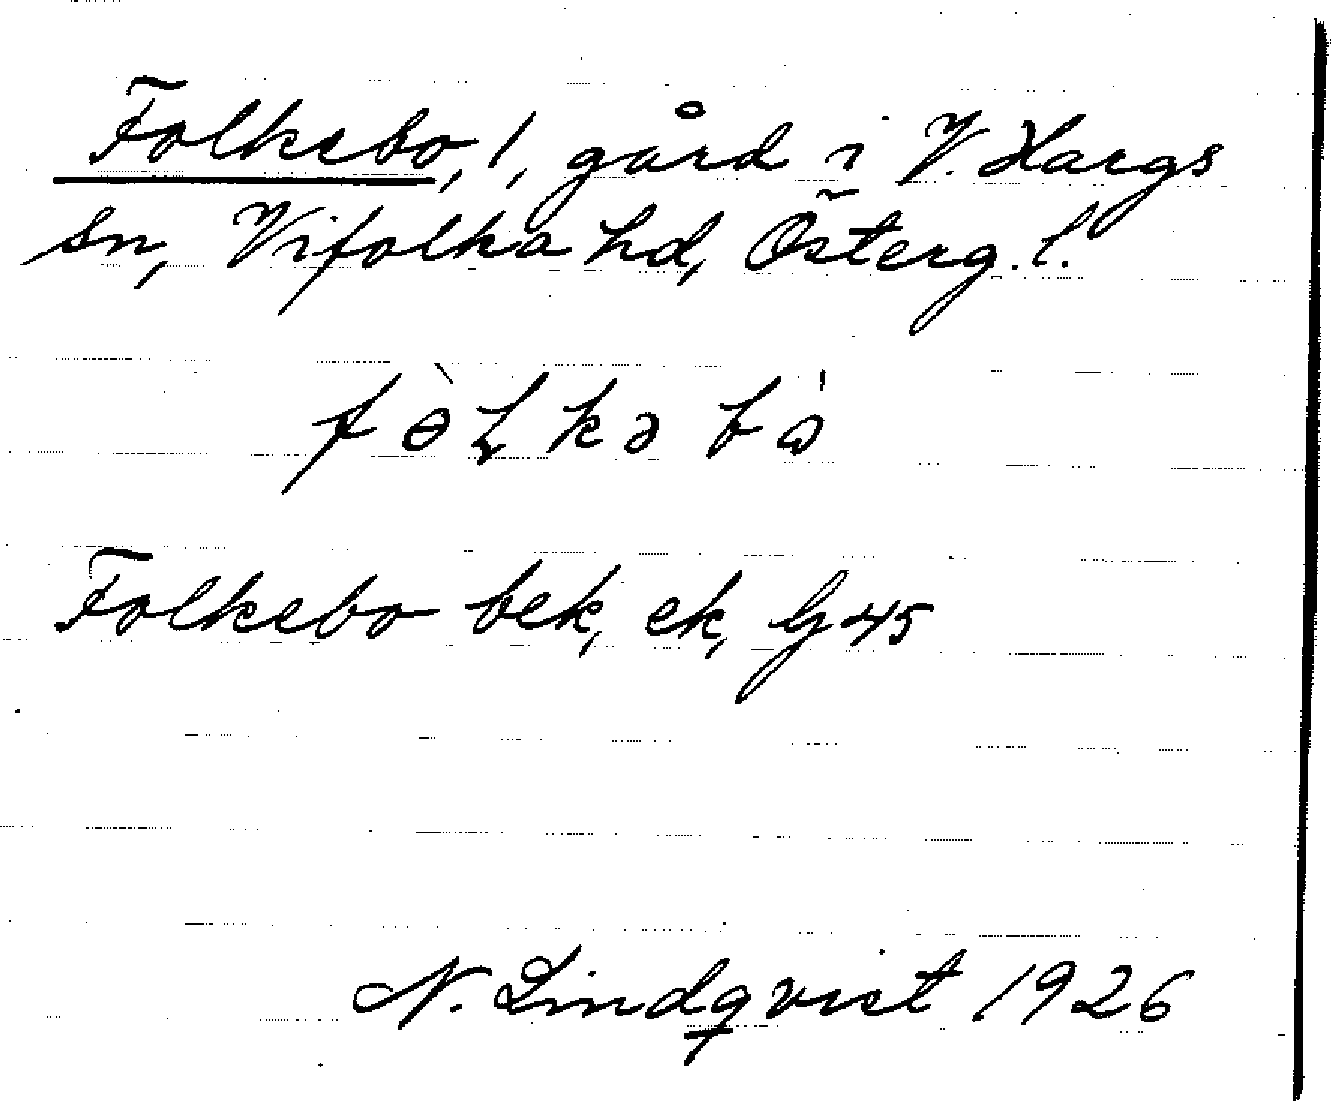 Folkebo, 1, gård i V. Hargs
sn, Vifolka hd, Österg. l.
fɵ̀ɫkə bɷ̀
Folkebo bek, ek, G 45
N. Lindqvist 1926